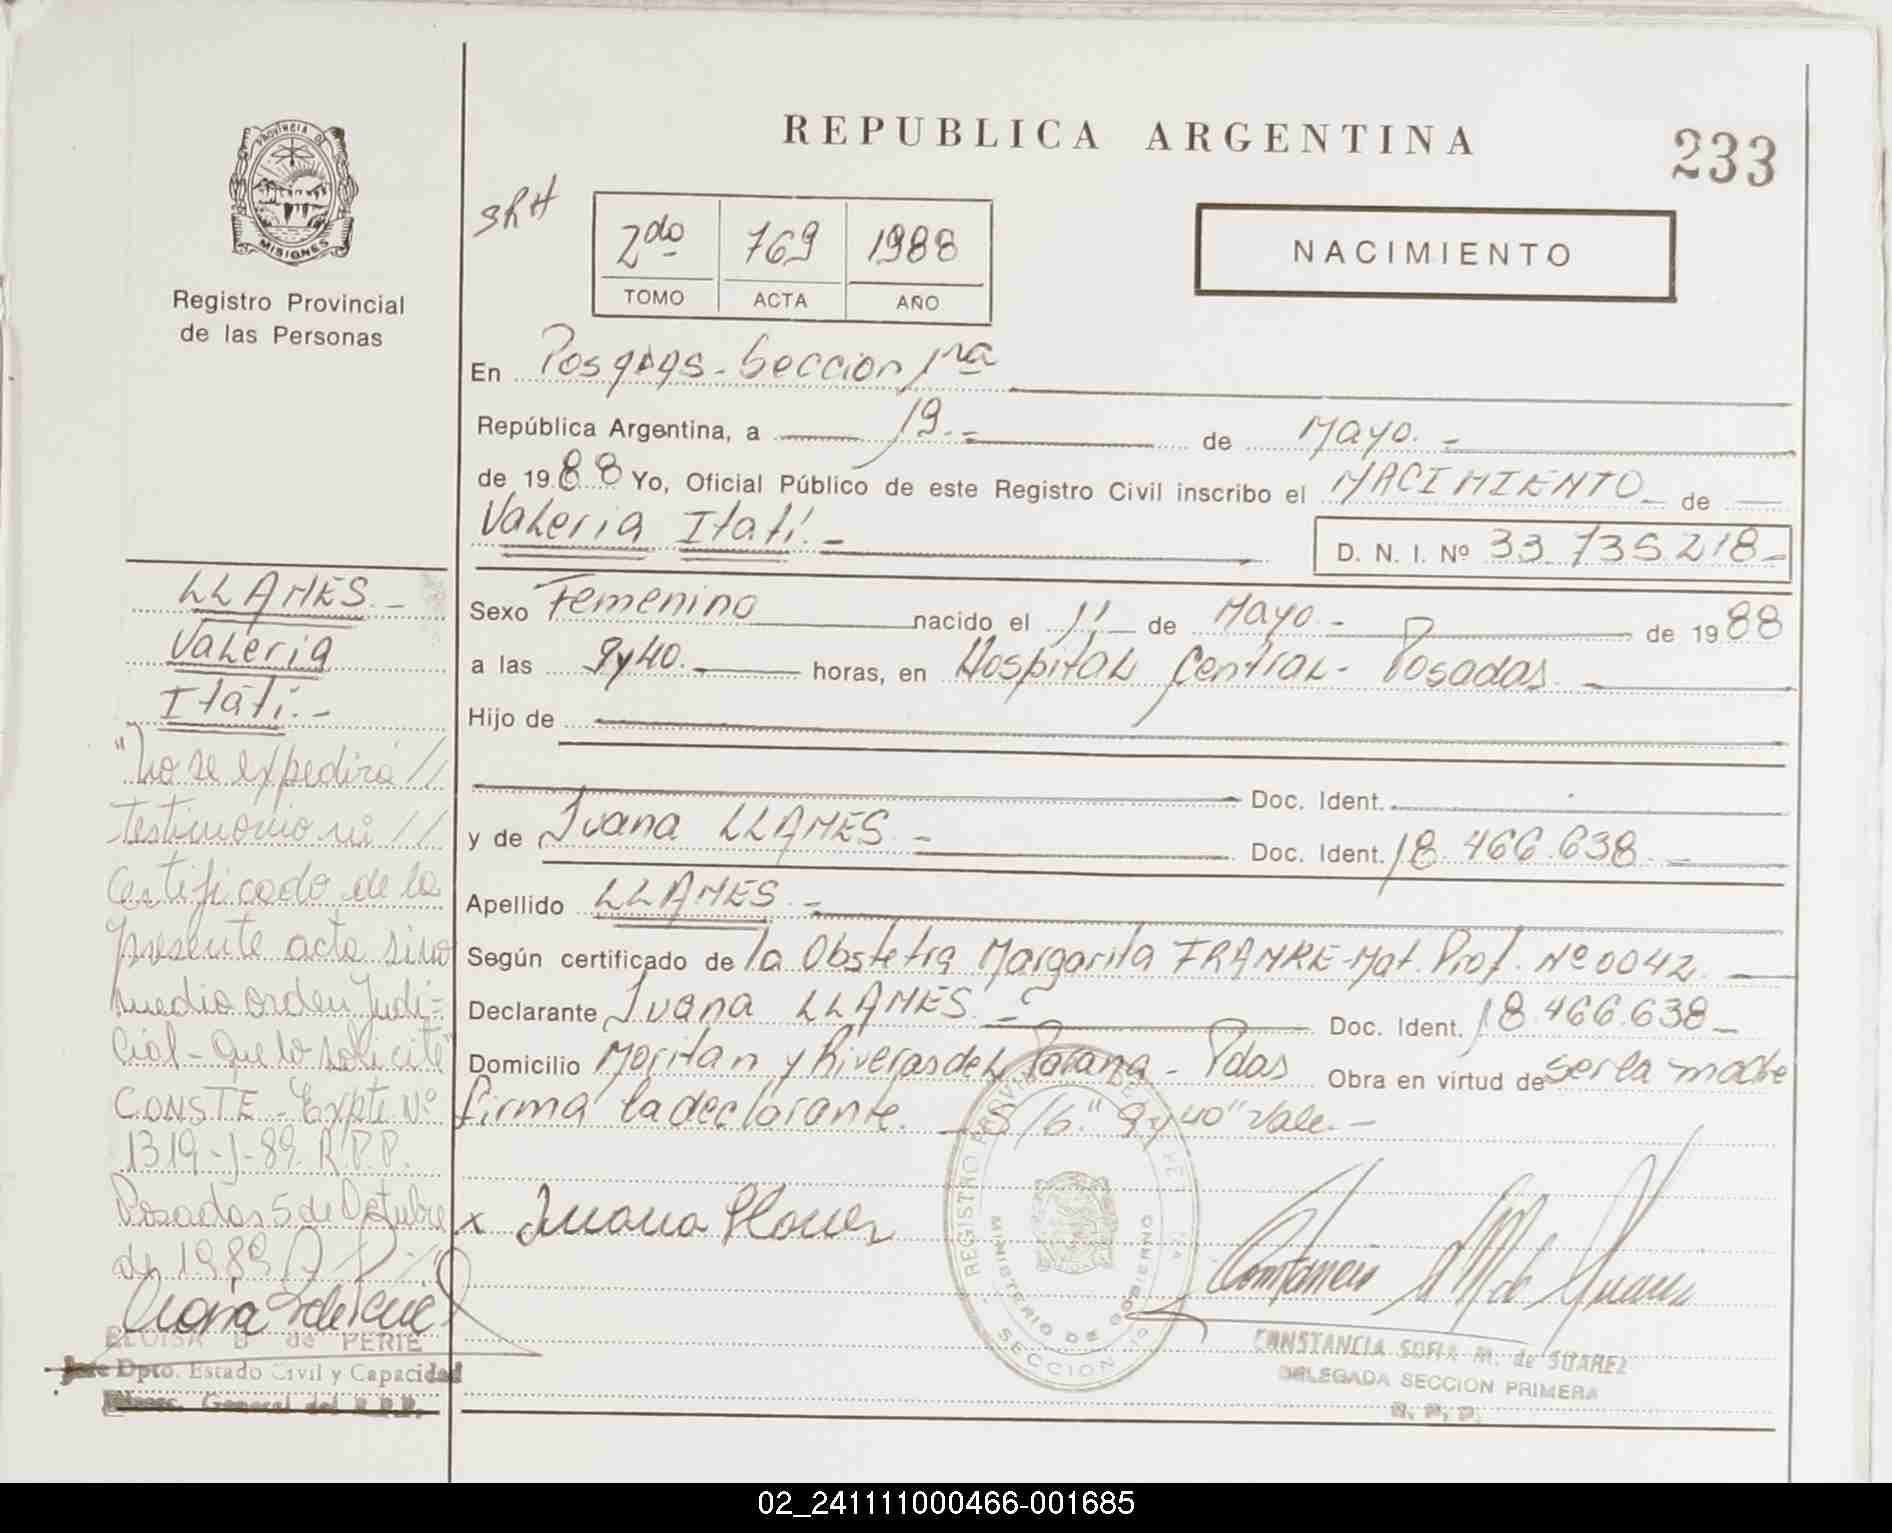 REPUBLICA ARGENTINA
233
PROVINCIA DE
MISIONES
Registro Provincial
de las Personas
SRH
2do 769 1988
TOMO ACTA AÑO
NACIMIENTO
En Posadas - Seccion 1ra
República Argentina, a 19.- de Mayo.-
de 1988 Yo, Oficial Público de este Registro Civil inscribo el NACIMIENTO de
Valeria Itatí.-
D. N. I. Nº 33.735.218-
Sexo Femenino nacido el 11 de Mayo.- de 1988
a las 9y40.- horas, en Hospital Central - Posadas.-
Hijo de
Doc. Ident.
y de Juana LLAMES.- Doc. Ident. 18.466.638.-
Apellido LLAMES.-
Según certificado de la Obstetra Margarita FRANKE - Mat. Prof. Nº 0042.-
Declarante Juana LLAMES.- Doc. Ident. 18.466.638-
Domicilio Moritan y Riveras del Parana - Pdas Obra en virtud de ser la madre
firma la declarante. - S/b. "9y40" Vale.-
x Juana Llames
REGISTRO PROVINCIAL
MINISTERIO DE GOBIERNO
SECCION
CONSTANCIA SOFIA M. de SUAREZ
DELEGADA SECCION PRIMERA
R. P. P.
LLAMES.-
Valeria
Itatí.-
"No se expedirá //
testimonio ni //
certificado de la
presente acta sino
medio orden Judi=
cial - que lo solicite"
CONSTE - Expte Nº
1319-J-89. R.P.P.
Posadas 5 de Octubre
de 1989
ELOISA B de PERIE
Jefe Dpto. Estado Civil y Capacidad
General del R.P.P.
02_241111000466-001685